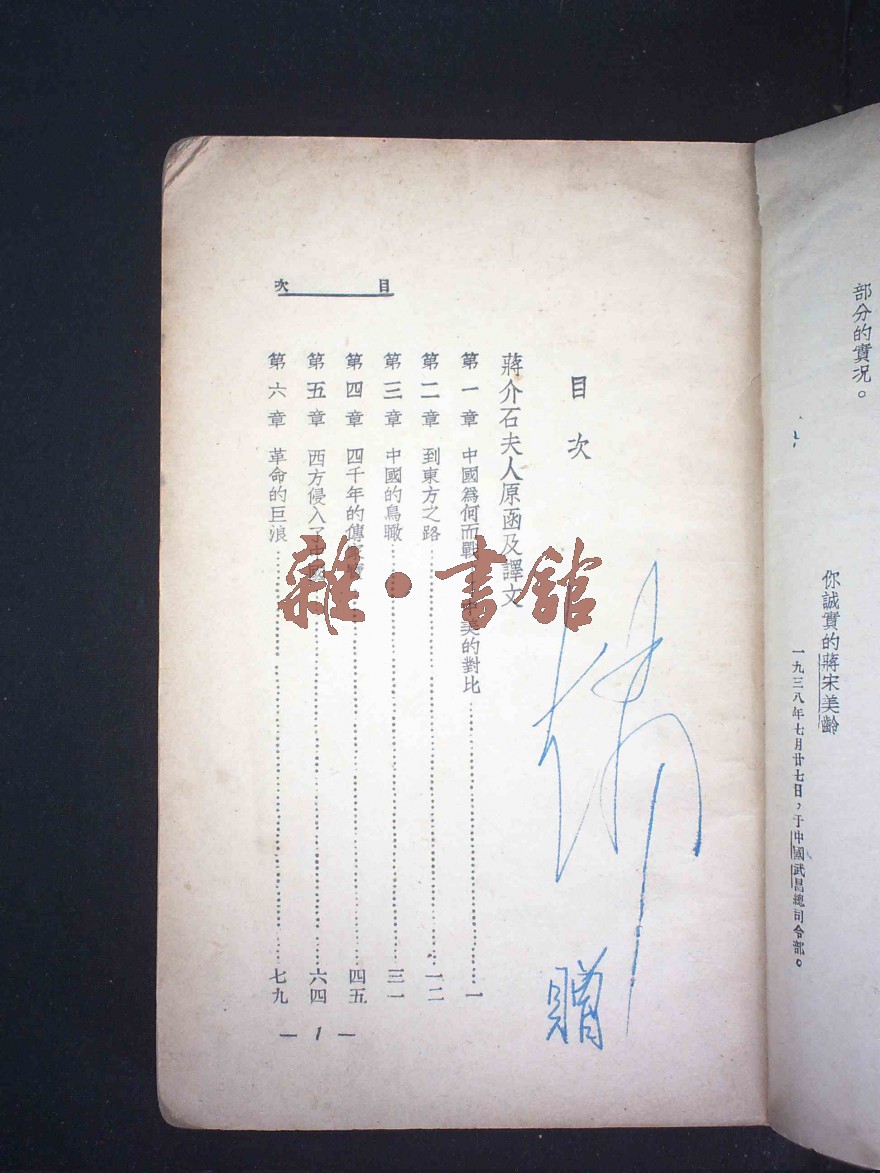 部分的實況。
你誠實的蔣宋美齡
一九三八年七月廿七日，于中國武昌總司令部。
目次
蔣介石夫人原函及譯文
第一章 中國爲何而戰 美的對比……一
第二章 到東方之路……一二
第三章 中國的鳥瞰……三一
第四章 四千年的傳……四五
第五章 西方侵入了中國……六四
第六章 革命的巨浪……七九
目 次
— 1 —
贈
雜·書館